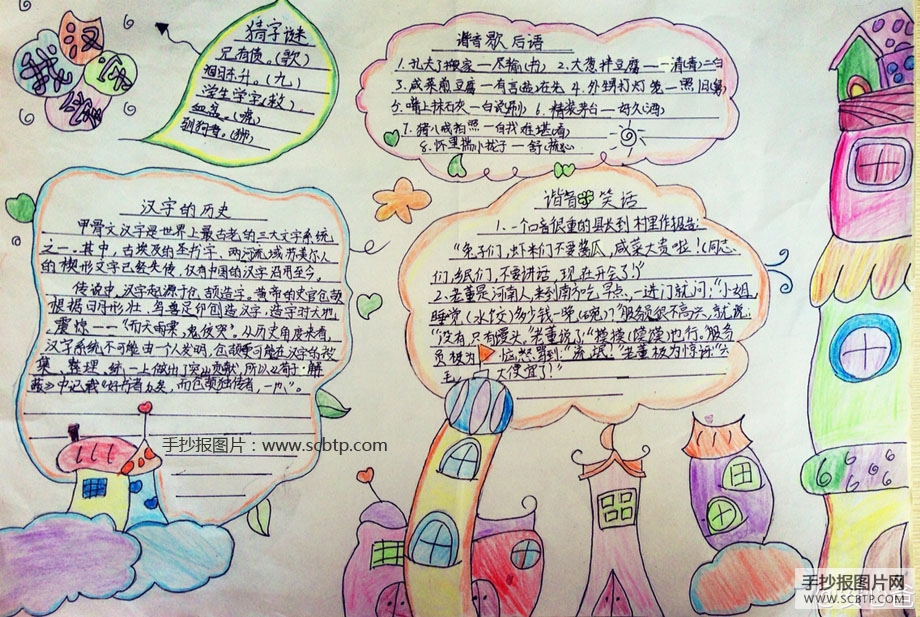 我
汉
猜字谜
兄有债。(歌)
旭日东升。(九)
学生学字(敉)
到狗年。(狮)
谐音歇后语
1.孔夫子搬家一尽输(书) 2.大葱拌豆腐——清(青)二白
3.咸菜煎豆腐一有言(盐)在先 4.外甥打灯笼一照旧(舅)
5.嘴上抹石灰一白说(刷) 6.精装茅台一好久(酒)
7.猪八戒拍照一自找难堪(看)
8.怀里揣小拢子一舒(梳)心
汉字的历史
甲骨文汉字是世界上最古老的三大文字系统
之一.其中,古埃及的圣书字、两河流域苏美尔人
的楔形文字已经失传,仅有中国的汉字沿用至今。
传说中,汉字起源于仓颉造字。黄帝的史官仓颉
根据日月形壮、鸟兽足印创造汉字,造字时天地
震惊——“而天雨粟,鬼夜哭”。从历史角度来看,
汉字系统不可能由一个人发明,仓颉更可能在汉字的收
集、整理,统一上做出了突出贡献,所以《荀子·解
蔽》中记载“好书者众矣,而仓颉独传者,一也”。
谐音笑话
1.一个口音很重的县长到村里作报告:
“兔子们,虾米们不要酱瓜,咸菜太贵啦!(同志
们,乡民们,不要讲话,现在开会了!)”
2.老董是河南人,来到南方吃早点,一进门就问:“小姐,
睡觉(水饺)多少钱一晚(碗)?”服务员很不高兴,就说:
“没有,只有馒头。”老董说了:“摸摸(馍馍)也行。”服务
员极为恼怒骂到:“流氓”
大便宜了!”
手抄报图片:www.scbtp.com
手抄报图片网
www.SCBTP.COM